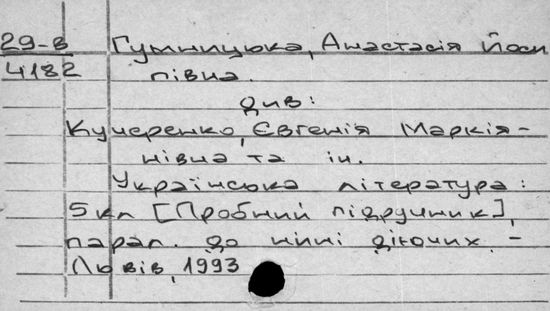 29-в Гумницька, Анастасія Йоси
4182 півна.
див:
Кучеренко, Євгенія Маркія-
нівна та ін.
Українська література:
5 кл [Пробний підручник],
парал. до нині діючих. -
Львів, 1993